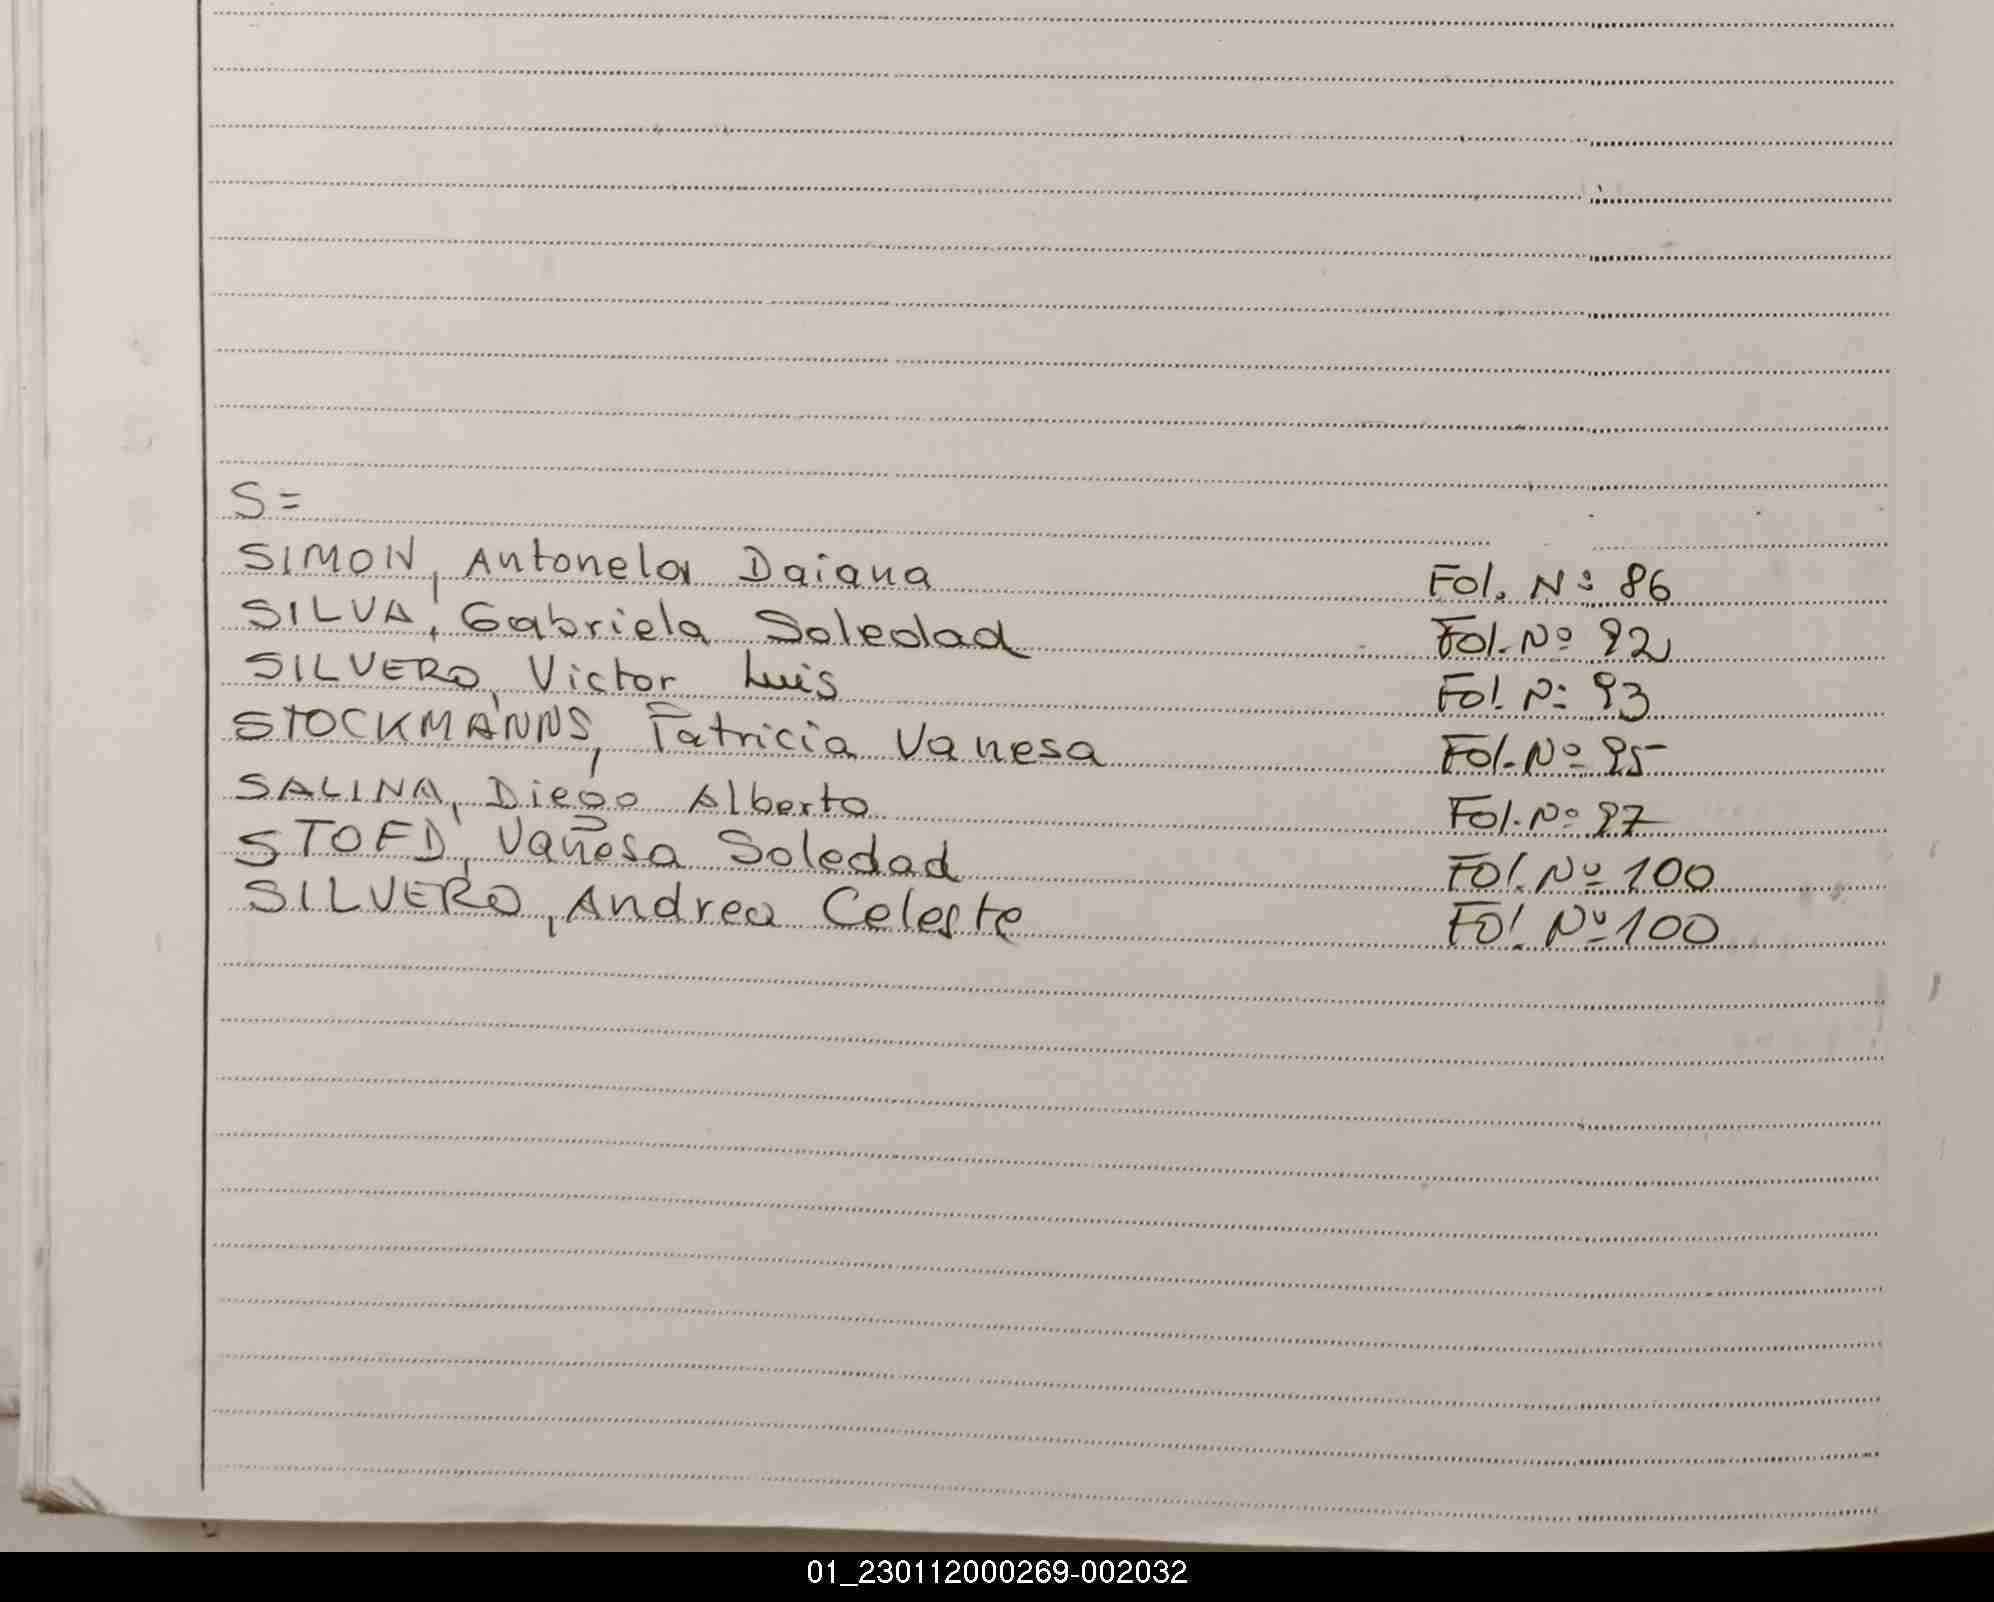 S=
SIMON, Antonela Daiana Fol. Nº 86
SILVA, Gabriela Soledad Fol. Nº 92
SILVERO, Victor Luis Fol Nº 93
STOCKMANNS, Patricia Vanesa Fol. Nº 95
SALINA, Diego Alberto Fol. Nº 97
STOFD, Vanesa Soledad Fol. Nº 100
SILVERO, Andrea Celeste Fol Nº 100
01_230112000269-002032